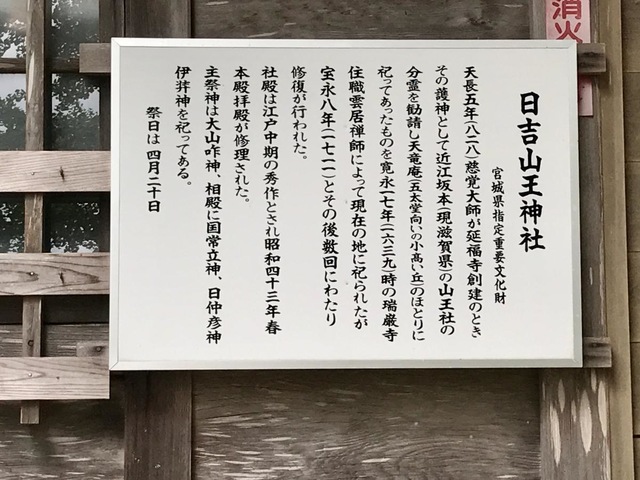 消火
日吉山王神社
宮城県指定重要文化財
天長五年(八二八)慈覚大師が延福寺創建のとき
その護神として近江坂本(現滋賀県)の山王社の
分霊を勧請し天竜庵(五太堂向いの小高い丘)のほとりに
祀ってあったものを寛永一七年(一六三九)時の瑞巌寺
住職雲居禅師によって現在の地に祀られたが
宝永八年(一七一一)とその後数回にわたり
修復が行われた。
社殿は江戸中期の秀作とされ昭和四十三年春
本殿拝殿が修理された。
主祭神は大山咋神、相殿に国常立神、日仲彦神
伊弉神を祀ってある。
祭日は四月二十日